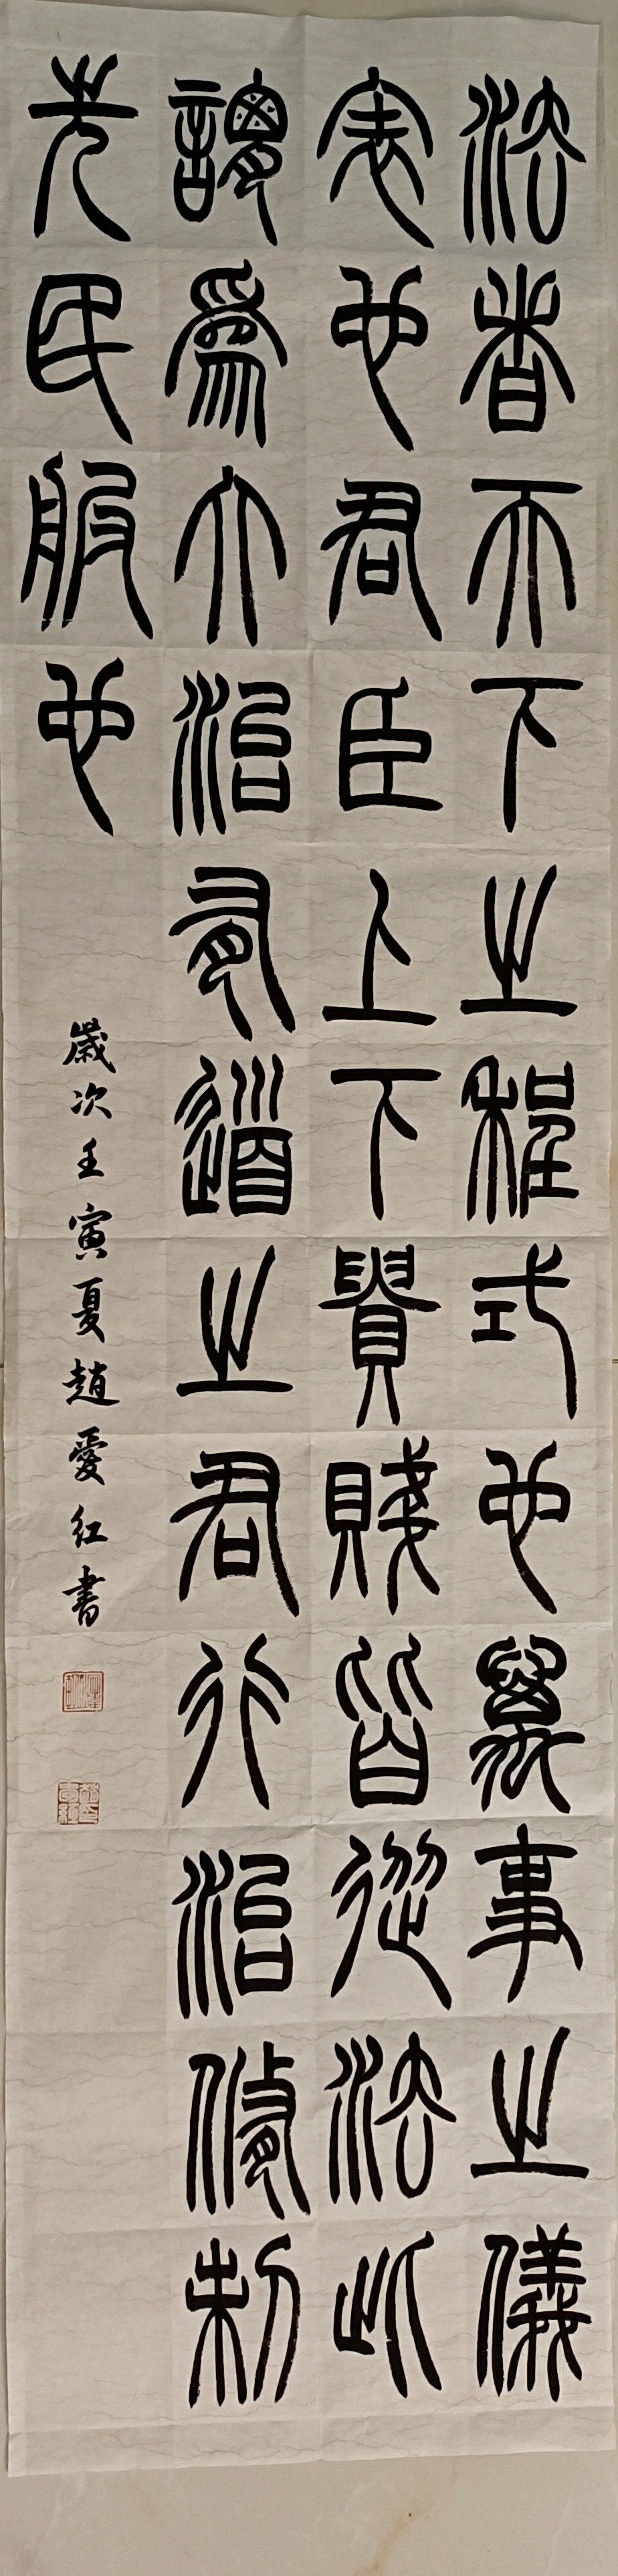 法者天下之程式也萬事之儀
表也君臣上下貴賤皆從法此
謂爲大治有道之君行治脩制
先民服也
歲次壬寅夏趙愛紅書